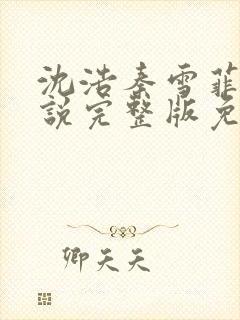 沈浩秦雪菲
说完整版免
卿天天